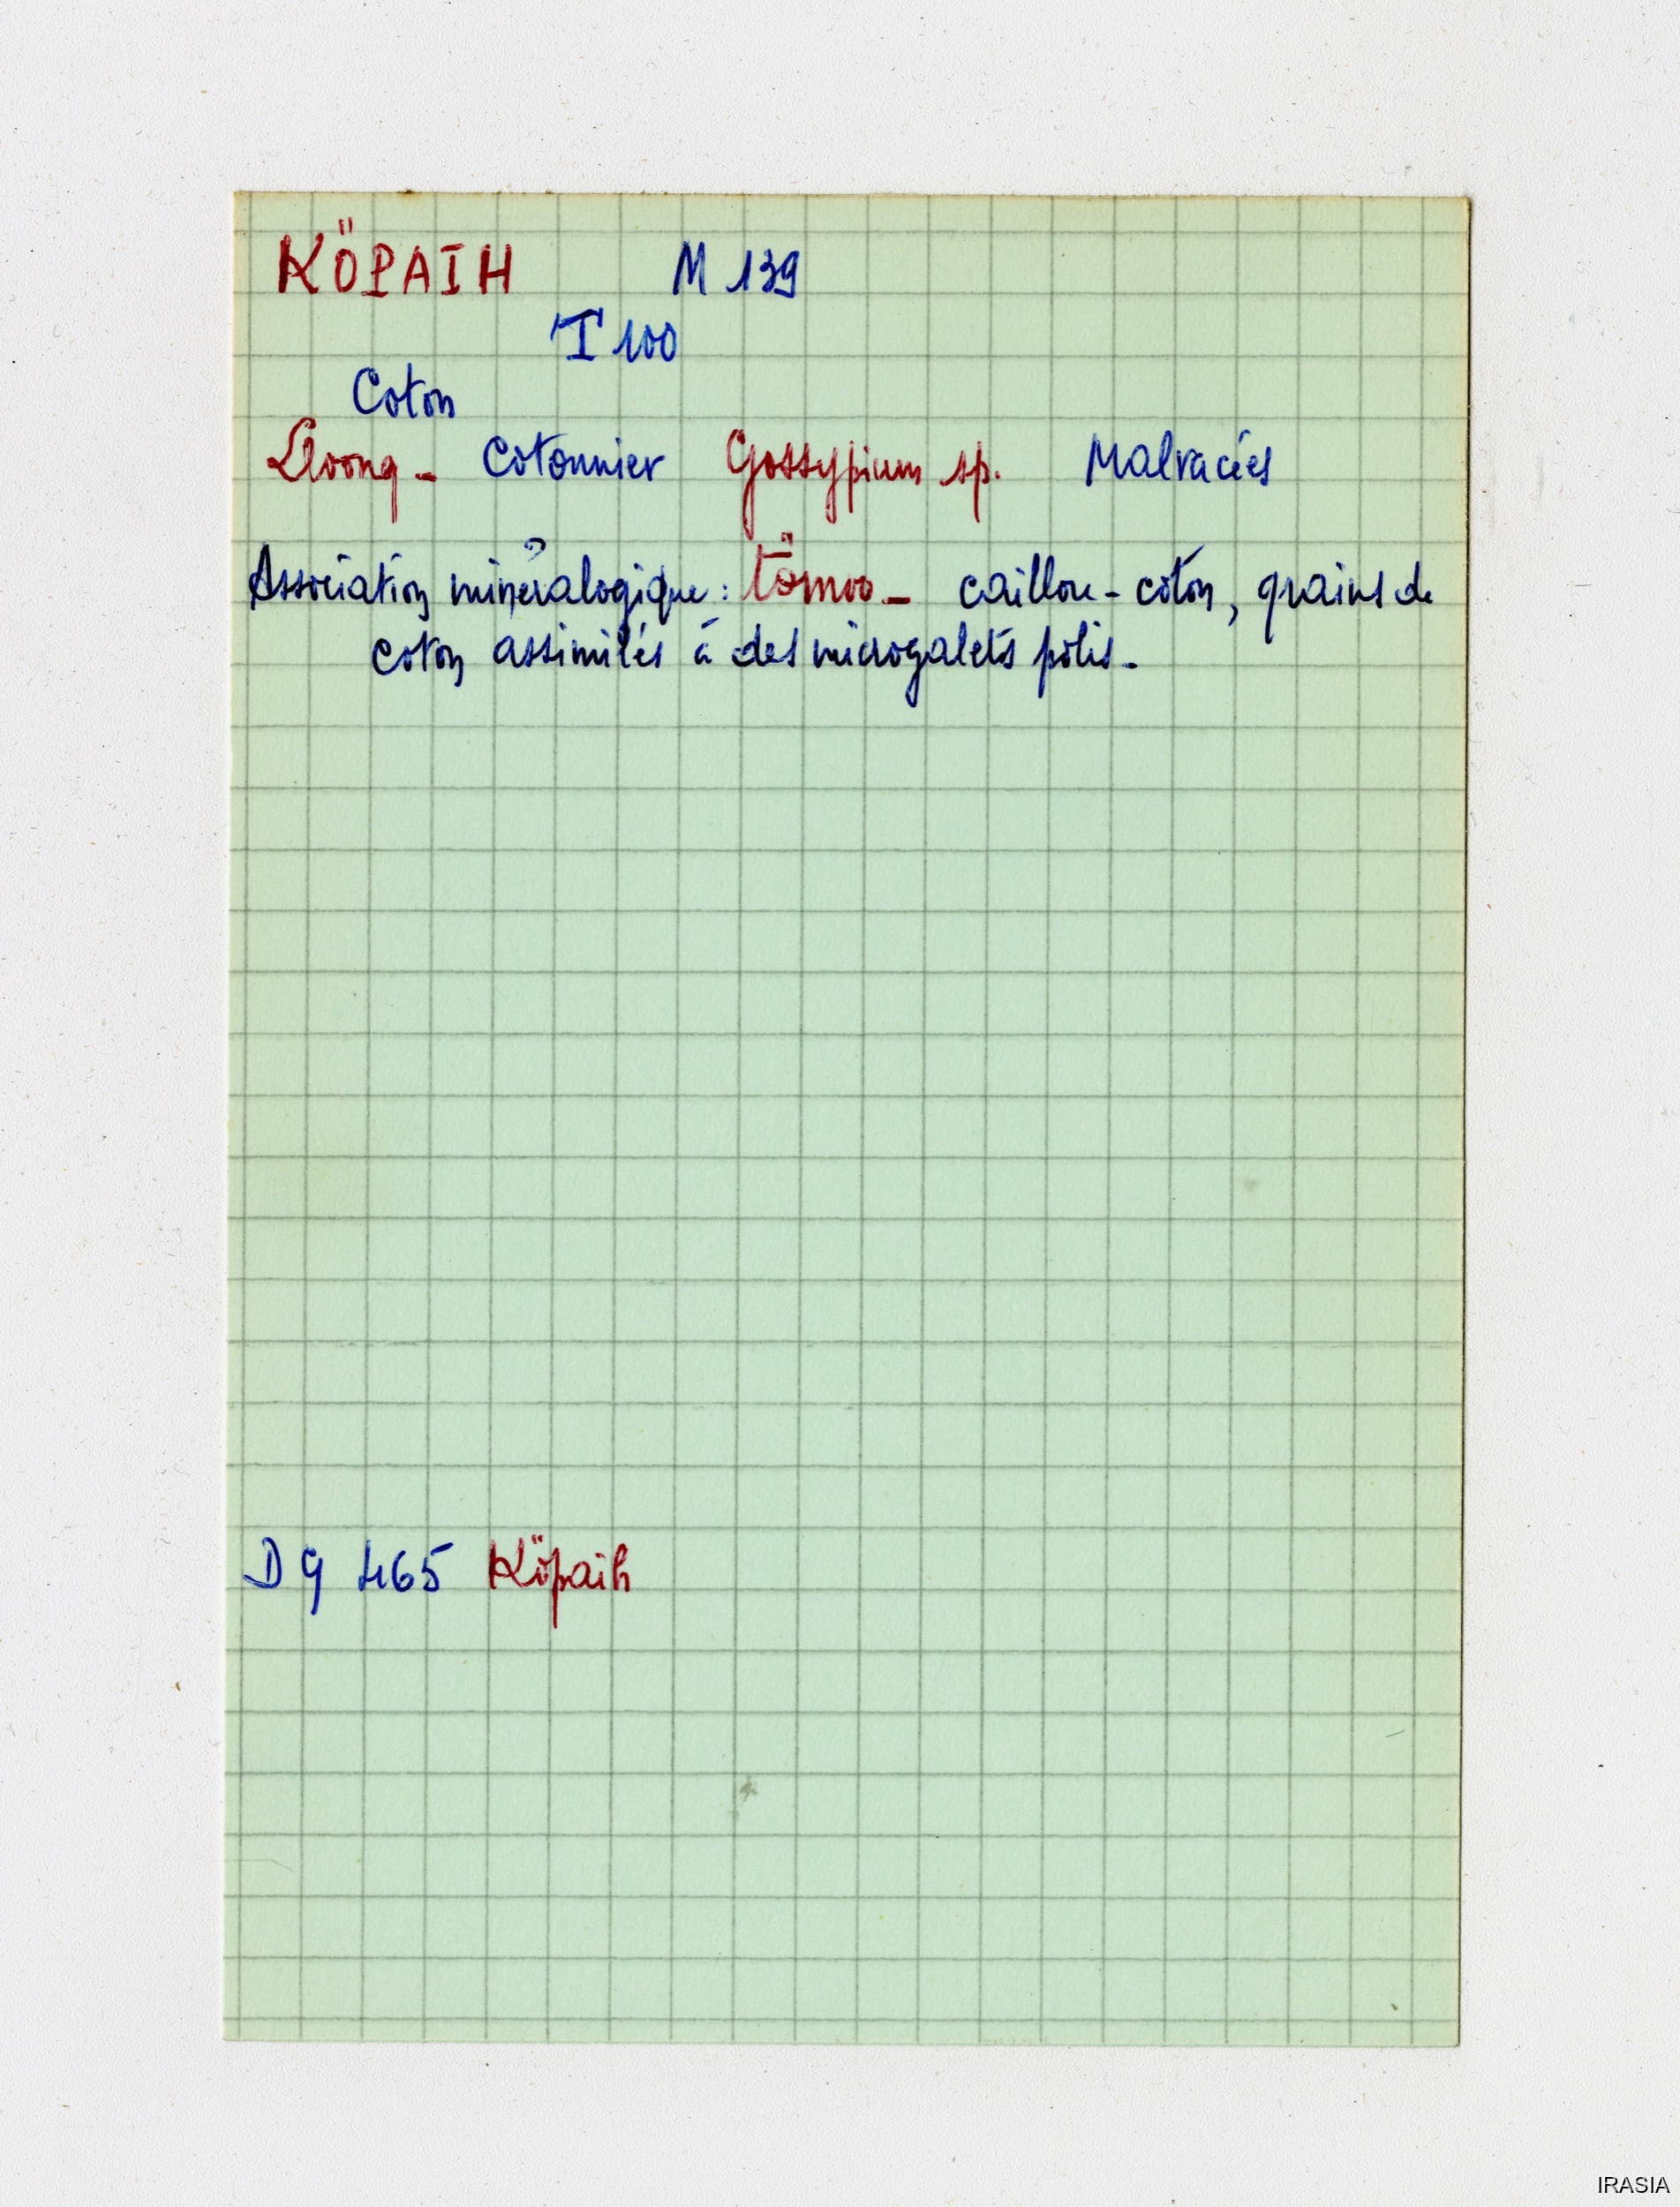 KÖPAIH M 139
T 100
Coton
Lloong - Cotonnier Gossypium sp. Malvacées
Association minéralogique : tömoo - caillou-coton, grains de
coton assimilés à des microgalets polis -
D 9 465 Köpaih
IRASIA